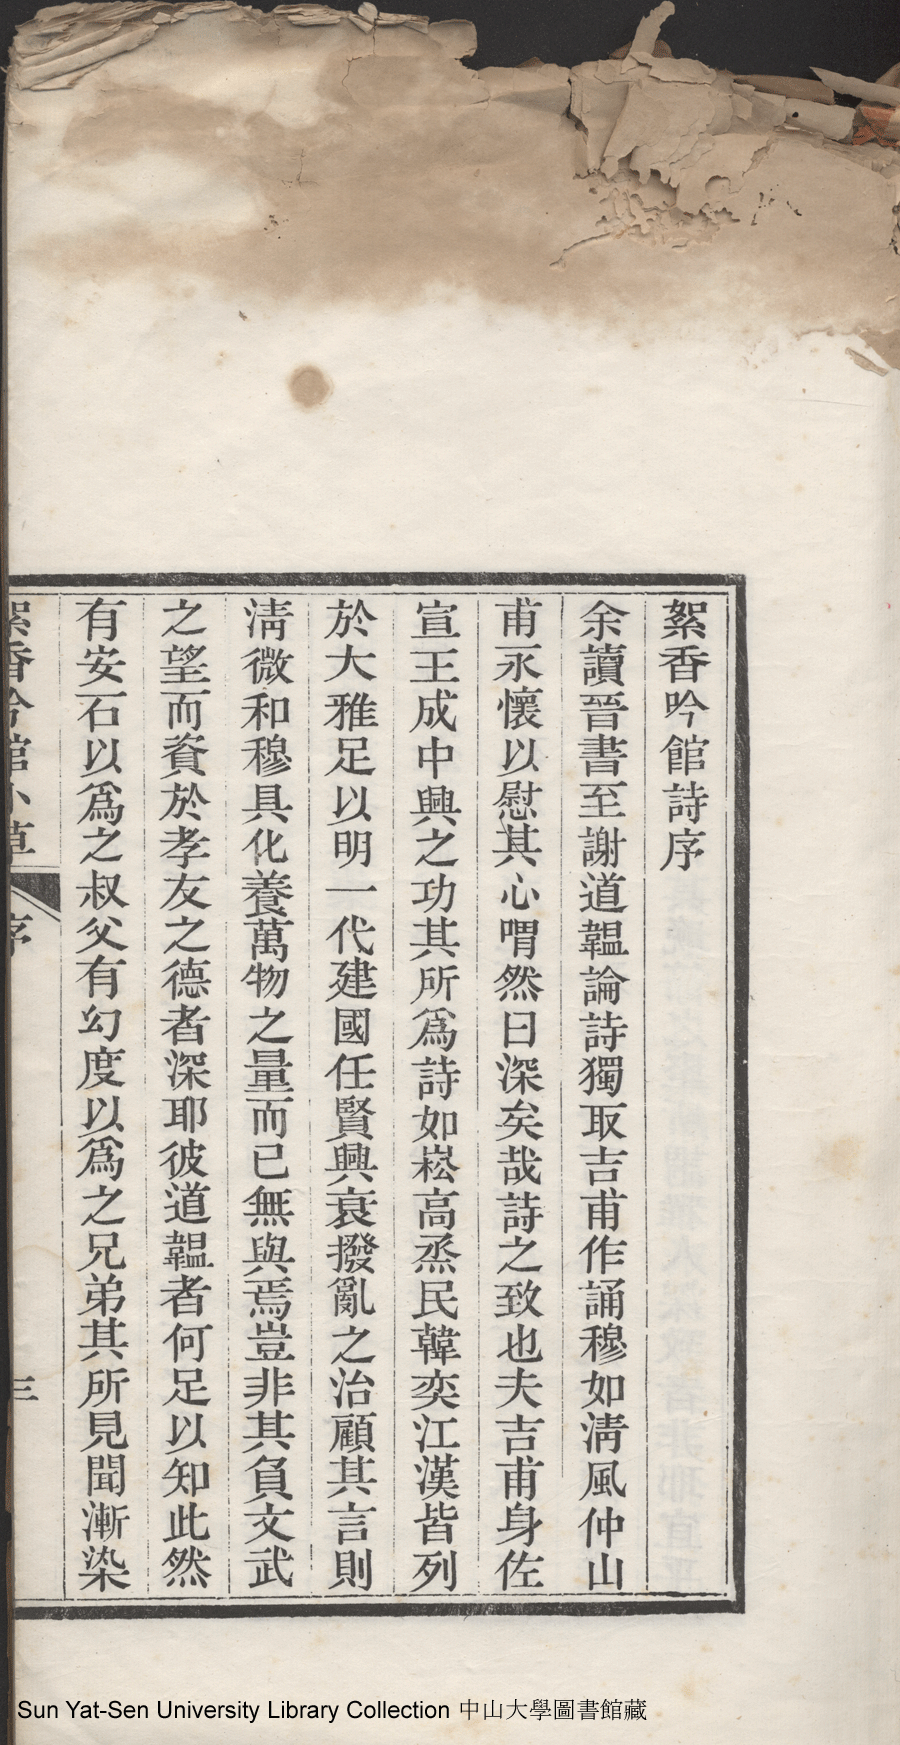 絮香吟館詩序
余讀晉書至謝道韞論詩獨取吉甫作誦穆如淸風仲山
甫永懷以慰其心喟然曰深矣哉詩之致也夫吉甫身佐
宣王成中興之功其所爲詩如崧高烝民韓奕江漢皆列
於大雅足以明一代建國任賢興衰撥亂之治顧其言則
淸微和穆具化養萬物之量而已無與焉豈非其負文武
之望而資於孝友之德者深耶彼道韞者何足以知此然
有安石以爲之叔父有幻度以爲之兄弟其所見聞漸染
絮香吟館小草
序
三
Sun Yat-Sen University Library Collection 中山大學圖書館藏